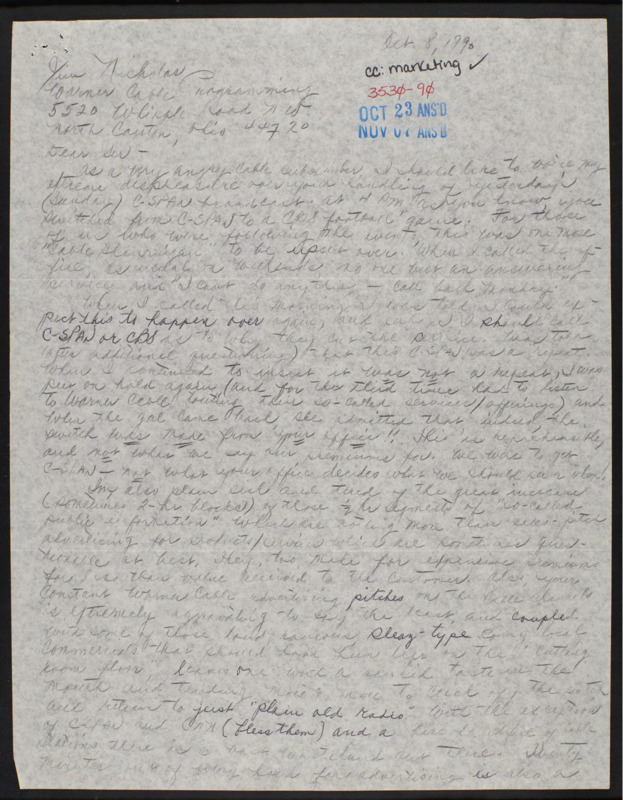 Oct. 8, 1990
cc: marketing ✓
3530-90
OCT 23 ANS'D
NOV 07 ANS'D
Jim Nicholas
Warner Cable Programming
5520 Whipple Road N.W.
North Canton, Ohio 44720
Dear Sir -
As a very angry cable subscriber, I should like to voice my
extreme displeasure over your handling of yesterday's
(Sunday) C-SPAN broadcast at 4 PM. When you know you
switched from C-SPAN to a CBS football game. For those
of us who were following the event, this was one more
"Cable Shenanigan" to be upset over. When I called the of-
fice, as usual on weekends no one but an answering
service and "I can't do anything - call back Monday."
When I called this morning I was told I could ex-
pect this to happen over again, and I should call
C-SPAN or CBS as to why they the service. I was told
(after additional questioning) that this C-SPAN was a repeat
When I continued to insist it was not a repeat, I was
put on hold again (and for the third time had to listen
to Warner Cable touting their so-called services/offerings) and
when the gal came back she admitted that indeed, the
switch was made from your office!! This is reprehensible,
and not what we pay our premiums for. We want to get
C-SPAN - not what your office decides what we should see
I'm also plain sick and tired of the great increase
(sometimes 2-hr blocks!) of those ½ hr segments of "so-called
public information" which are nothing more than sales-pitch
advertising for products/services which are sometimes ques-
tionable at best. They, too, made for expensive premiums
for less than value received to the customer. Also your
constant Warner Cable advertising pitches on the
is extremely aggravating to say the least, and coupled
with some of those loud raucous sleaz-type local
commercials that should have been left on the "cutting
room floor," leaves one with a taste in the
mouth and tending more & more to
and return to just "plain old radio." With the exception
of C-SPAN and CNN (bless them) and a of cable
stations there is
minutes out of being used for advertising is also a